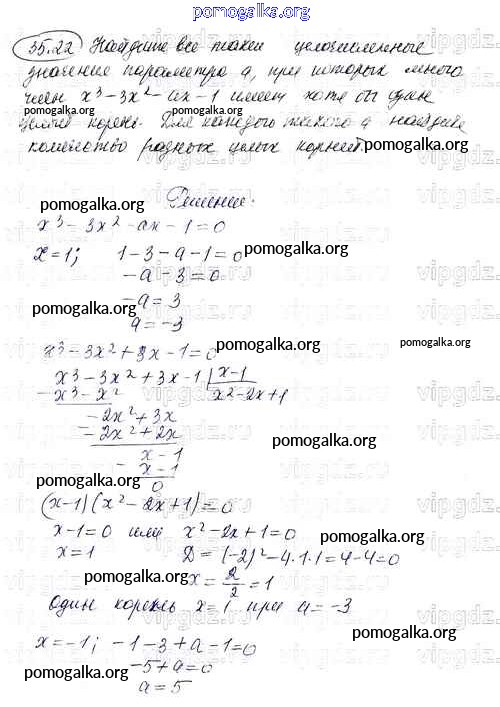 pomogalka.org
35.22 Найдите все такие целочисленные
значение параметра а, при которых много
член x³-3x²-ax-1 имеет хотя бы один
pomogalka.org pomogalka.org
целый корень. Для каждого такого а найдите
количество разных целых корней. pomogalka.org
Решение.
pomogalka.org pomogalka.org
x³-3x²-ax-1=0
x=1; 1-3-a-1=0 pomogalka.org
-a-3=0
vipgdz.ru
-a=3
pomogalka.org pomogalka.org
a=-3
pomogalka.org
x³-3x²+3x-1=0
x³-3x²+3x-1 | x-1
x³-x² x²-2x+1
-2x²+3x
-2x²+2x pomogalka.org
x-1
x-1
0
pomogalka.org
(x-1)(x²-2x+1)=0
x-1=0 или x²-2x+1=0
x=1 D=(-2)²-4·1·1=4-4=0
pomogalka.org x=2/2=1 pomogalka.org
Один корень x=1 при a=-3
pomogalka.org
x=-1; -1-3+a-1=0
pomogalka.org -5+a=0 pomogalka.org
a=5